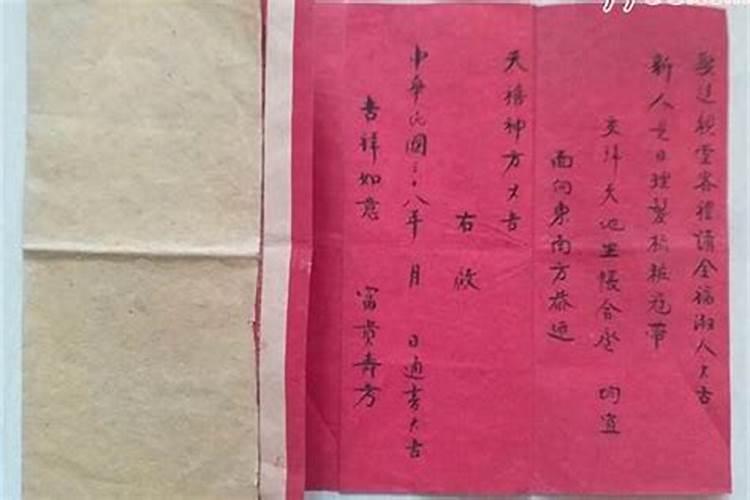 娶送親堂客禮請全福淑人大吉
新人是日理髮梳粧冠帶
交拜天地坐帳合卺 均宜
面向東南方恭迎
天德神方大吉
右啟
中華民國三十八年 月 日通書大吉
吉祥如意 富貴壽考